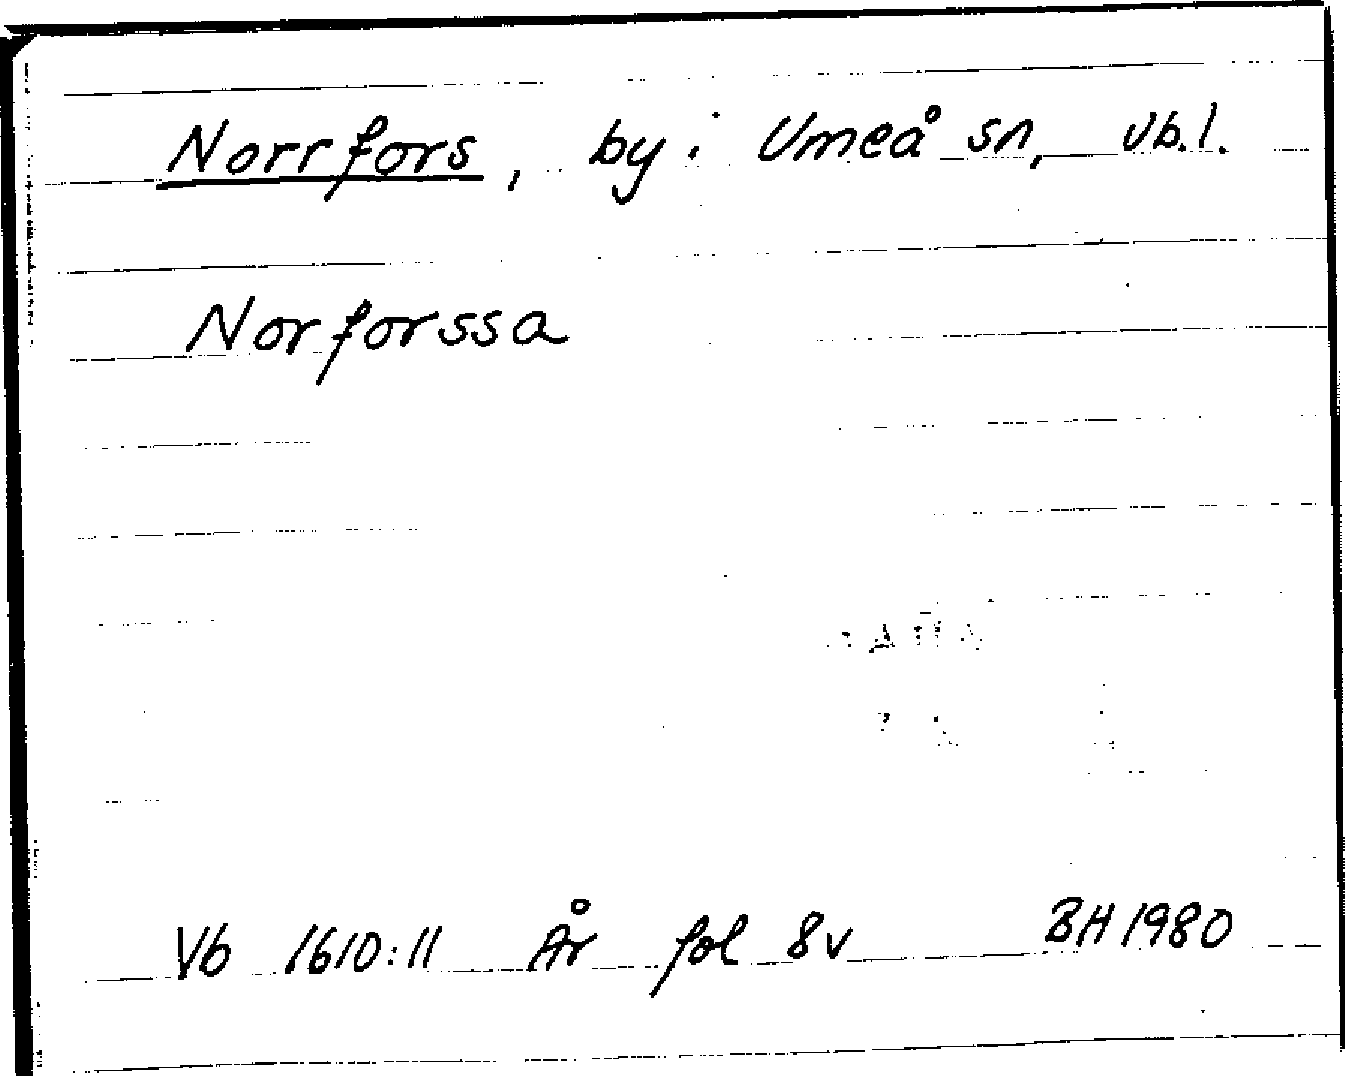 Norrfors, by i Umeå sn, Vb.l.
Norforssa
Vb 1610:11 År fol 8v BH 1980